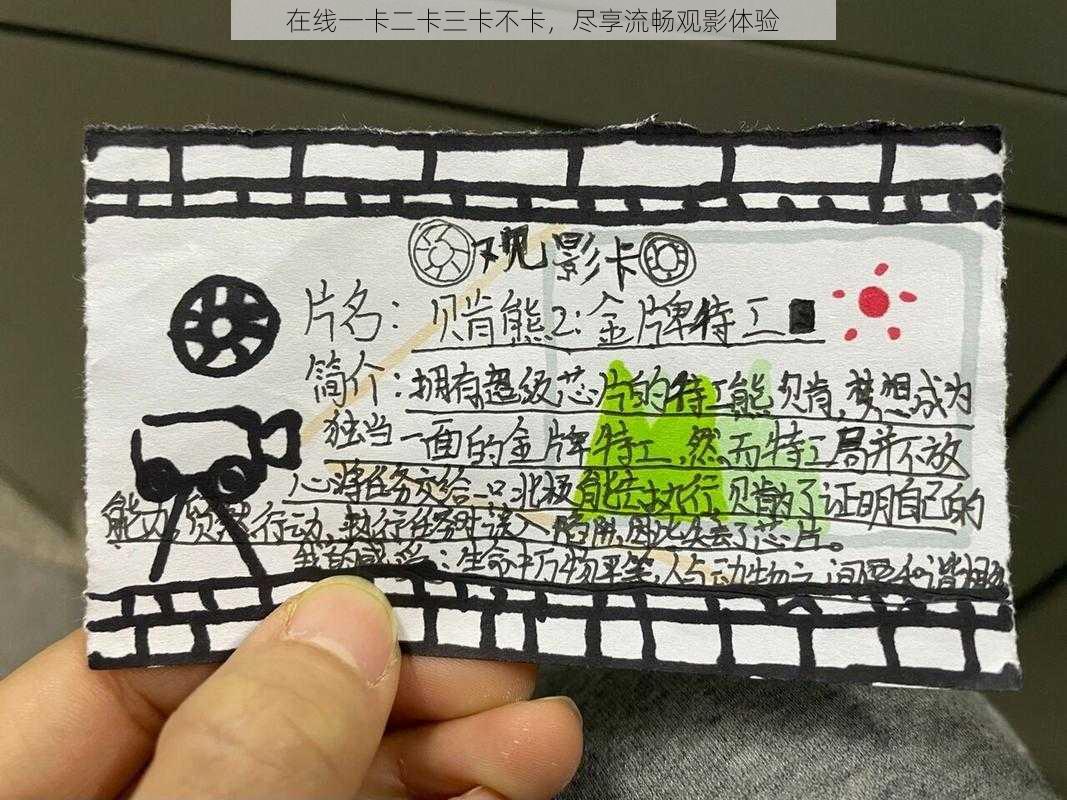 在线一卡二卡三卡不卡，尽享流畅观影体验
观影卡
片名：贝肯熊2：金牌特工
简介：拥有超级芯片的特工熊贝肯，梦想成为
独当一面的金牌特工，然而特工局并不放
心将任务交给一只北极熊去执行，贝肯为了证明自己的
能力，贸然行动，执行任务时误入陷阱，因此失去了芯片。
我的感受：生命中万物平等，人与动物之间要和谐相处